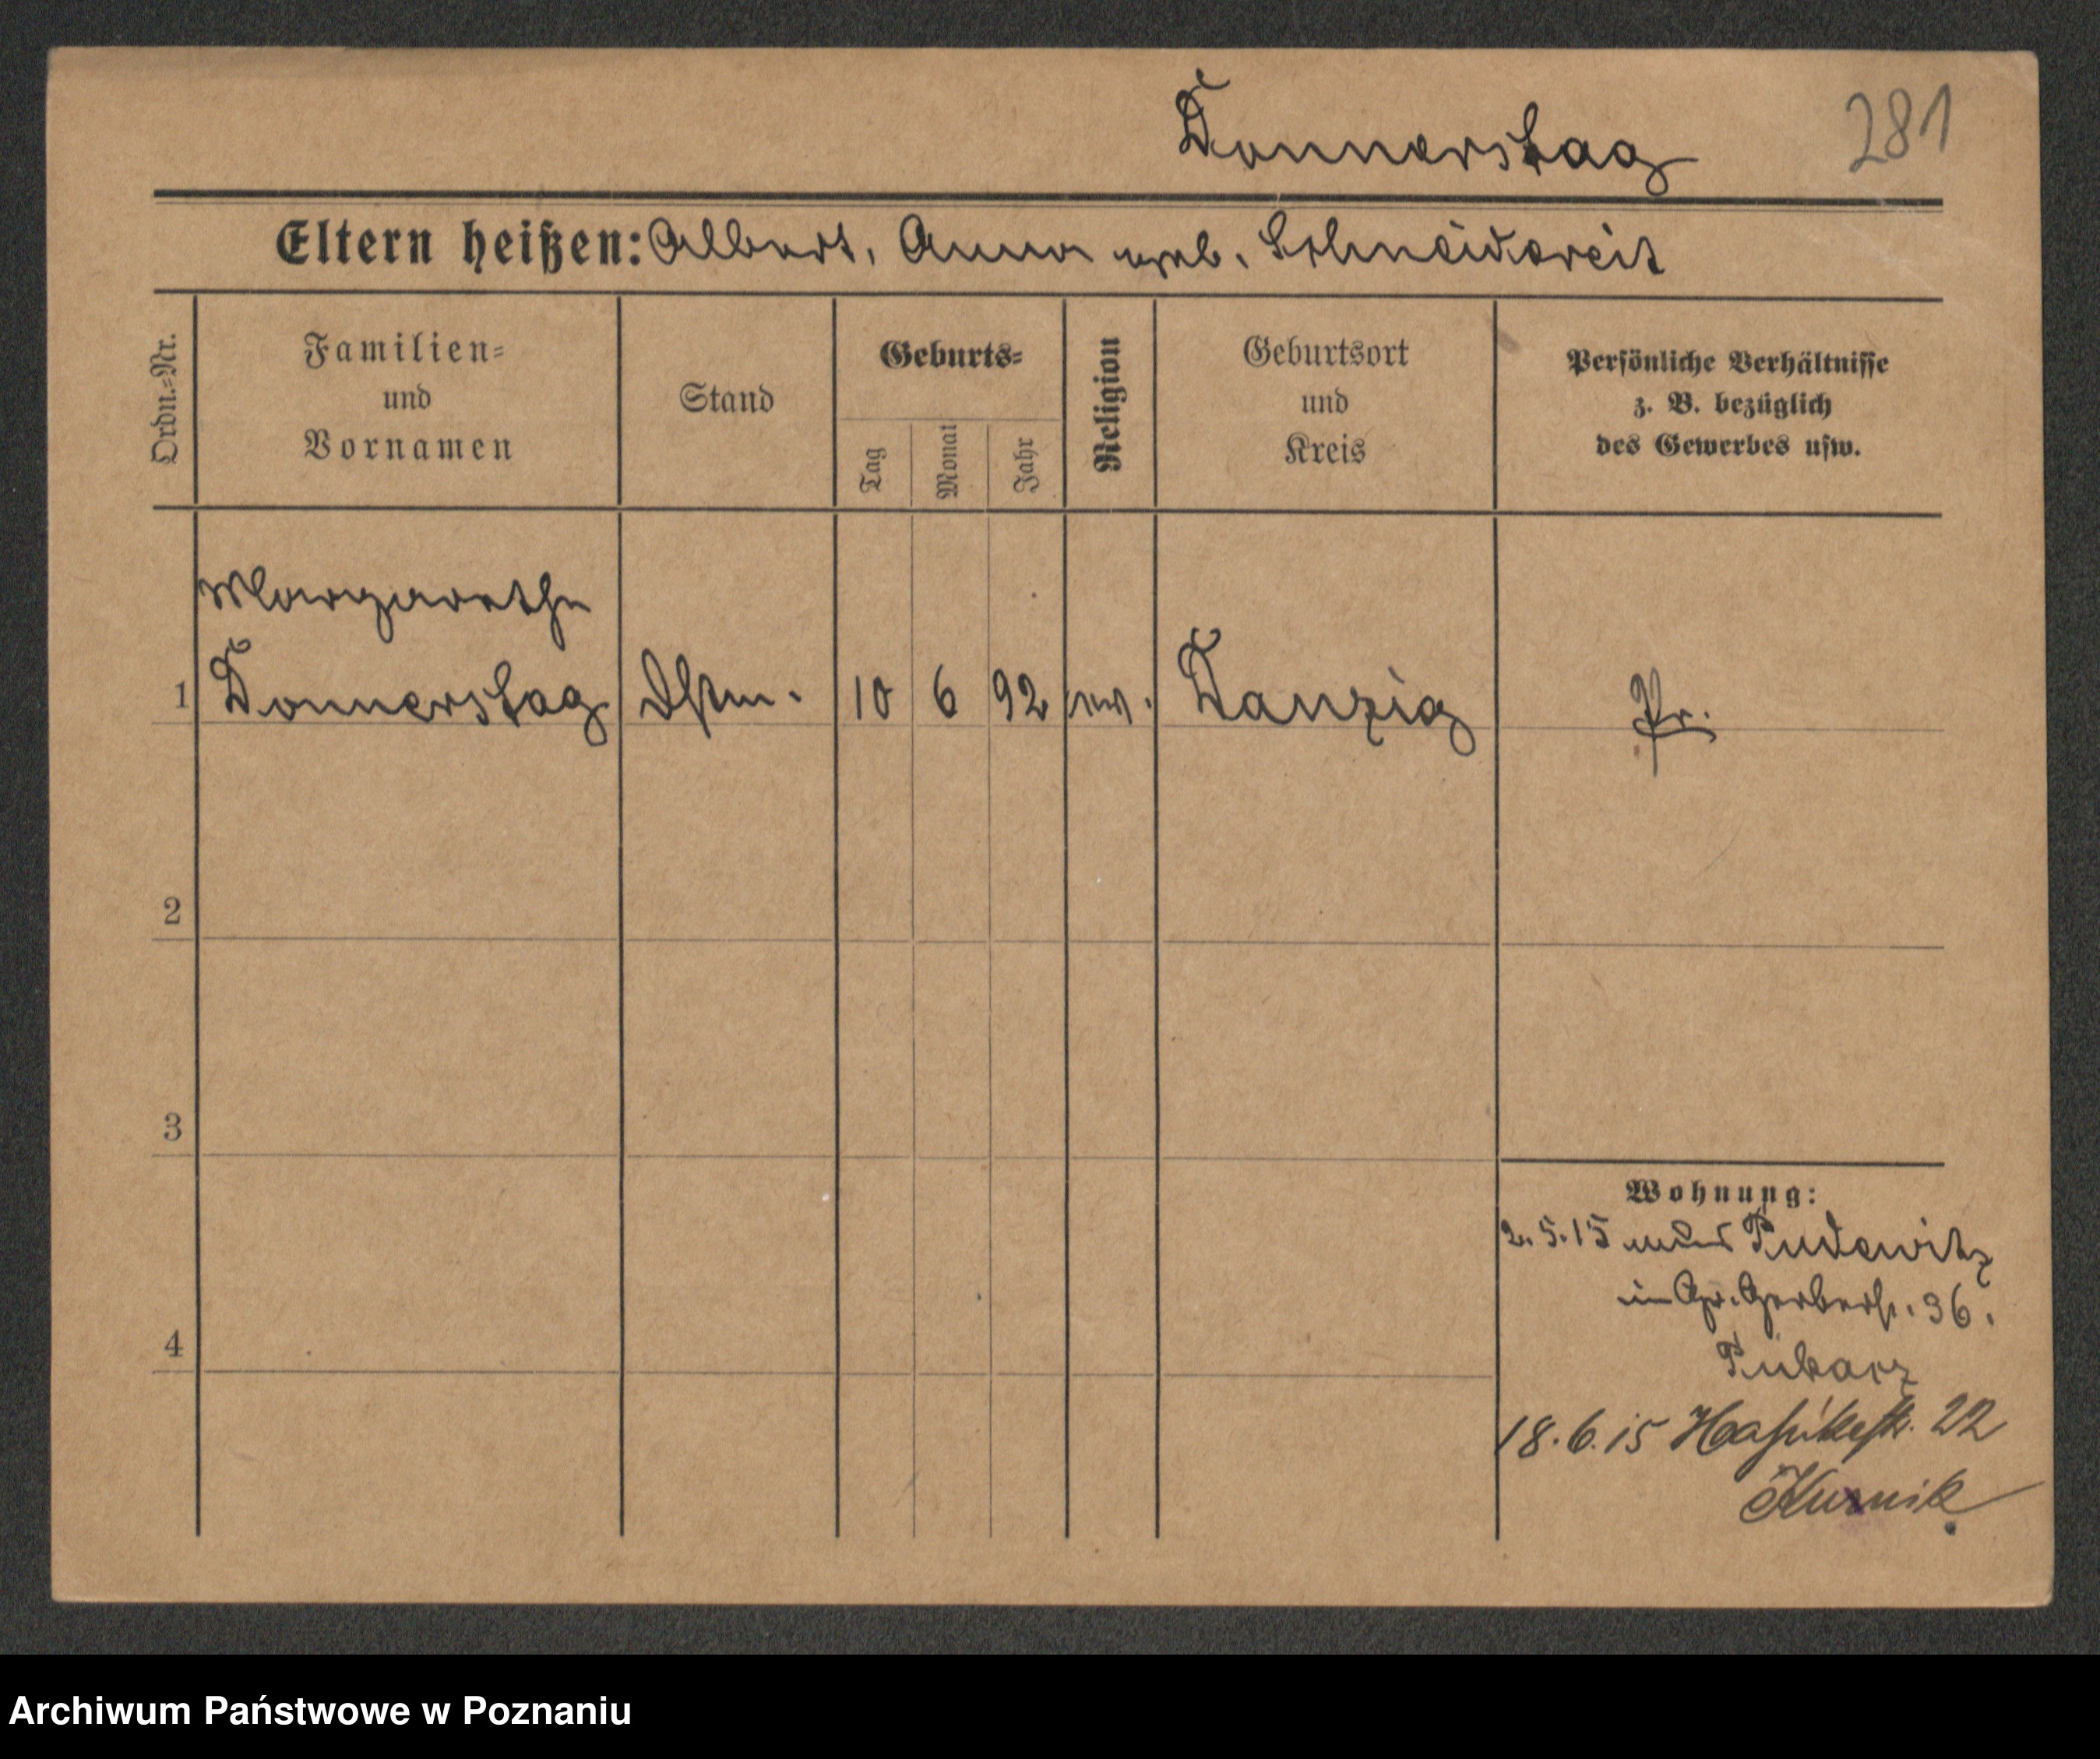 Donnerstag 281
Eltern heißen: Albert, Anna geb. Schneidereit
Ordn.=Nr.
Familien=
und
Vornamen
Stand
Geburts=
Tag
Monat
Jahr
Religion
Geburtsort
und
Kreis
Persönliche Verhältnisse
z. B. bezüglich
des Gewerbes usw.
Margarethe
1 Donnerstag 10 6 92 ev. Danzig Pr.
2
3
4
Wohnung:
2.5.15 aus Pudewitz
in Gr. Gerberstr. 36.
18.6.15 22
Kurnik
Archiwum Państwowe w Poznaniu